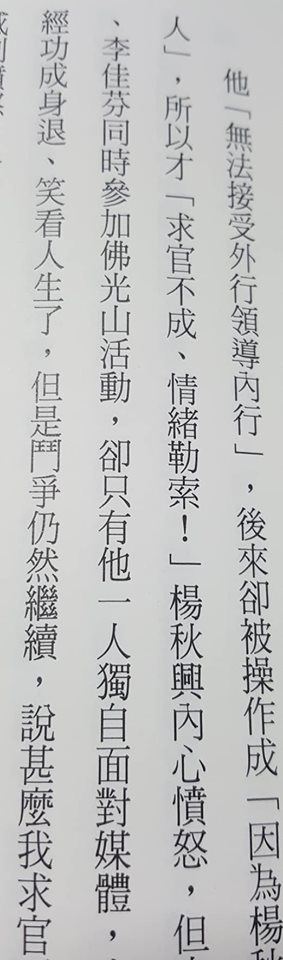 他「無法接受外行領導內行」，後來卻被操作成「因為楊
人」，所以才「求官不成、情緒勒索！」楊秋興內心憤怒，但
、李佳芬同時參加佛光山活動，卻只有他一人獨自面對媒體，
經功成身退、笑看人生了，但是鬥爭仍然繼續，說甚麼我求官